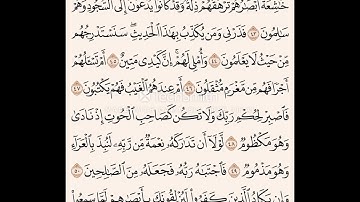 خَٰشِعَةً أَبْصَٰرُهُمْ تَرْهَقُهُمْ ذِلَّةٌ وَقَدْ كَانُوا۟ يُدْعَوْنَ إِلَى ٱلسُّجُودِ وَهُمْ
سَٰلِمُونَ ٤٣ فَذَرْنِى وَمَن يُكَذِّبُ بِهَٰذَا ٱلْحَدِيثِ سَنَسْتَدْرِجُهُم
مِّنْ حَيْثُ لَا يَعْلَمُونَ ٤٤ وَأُمْلِى لَهُمْ إِنَّ كَيْدِى مَتِينٌ ٤٥ أَمْ تَسْـَٔلُهُمْ
أَجْرًا فَهُم مِّن مَّغْرَمٍ مُّثْقَلُونَ ٤٦ أَمْ عِندَهُمُ ٱلْغَيْبُ فَهُمْ يَكْتُبُونَ ٤٧
فَٱصْبِرْ لِحُكْمِ رَبِّكَ وَلَا تَكُن كَصَاحِبِ ٱلْحُوتِ إِذْ نَادَىٰ
وَهُوَ مَكْظُومٌ ٤٨ لَّوْلَآ أَن تَدَٰرَكَهُۥ نِعْمَةٌ مِّن رَّبِّهِۦ لَنُبِذَ بِٱلْعَرَآءِ
وَهُوَ مَذْمُومٌ ٤٩ فَٱجْتَبَٰهُ رَبُّهُۥ فَجَعَلَهُۥ مِنَ ٱلصَّٰلِحِينَ ٥٠
وَإِن يَكَادُ ٱلَّذِينَ كَفَرُوا۟ لَيُزْلِقُونَكَ بِأَبْصَٰرِهِمْ لَمَّا سَمِعُوا۟